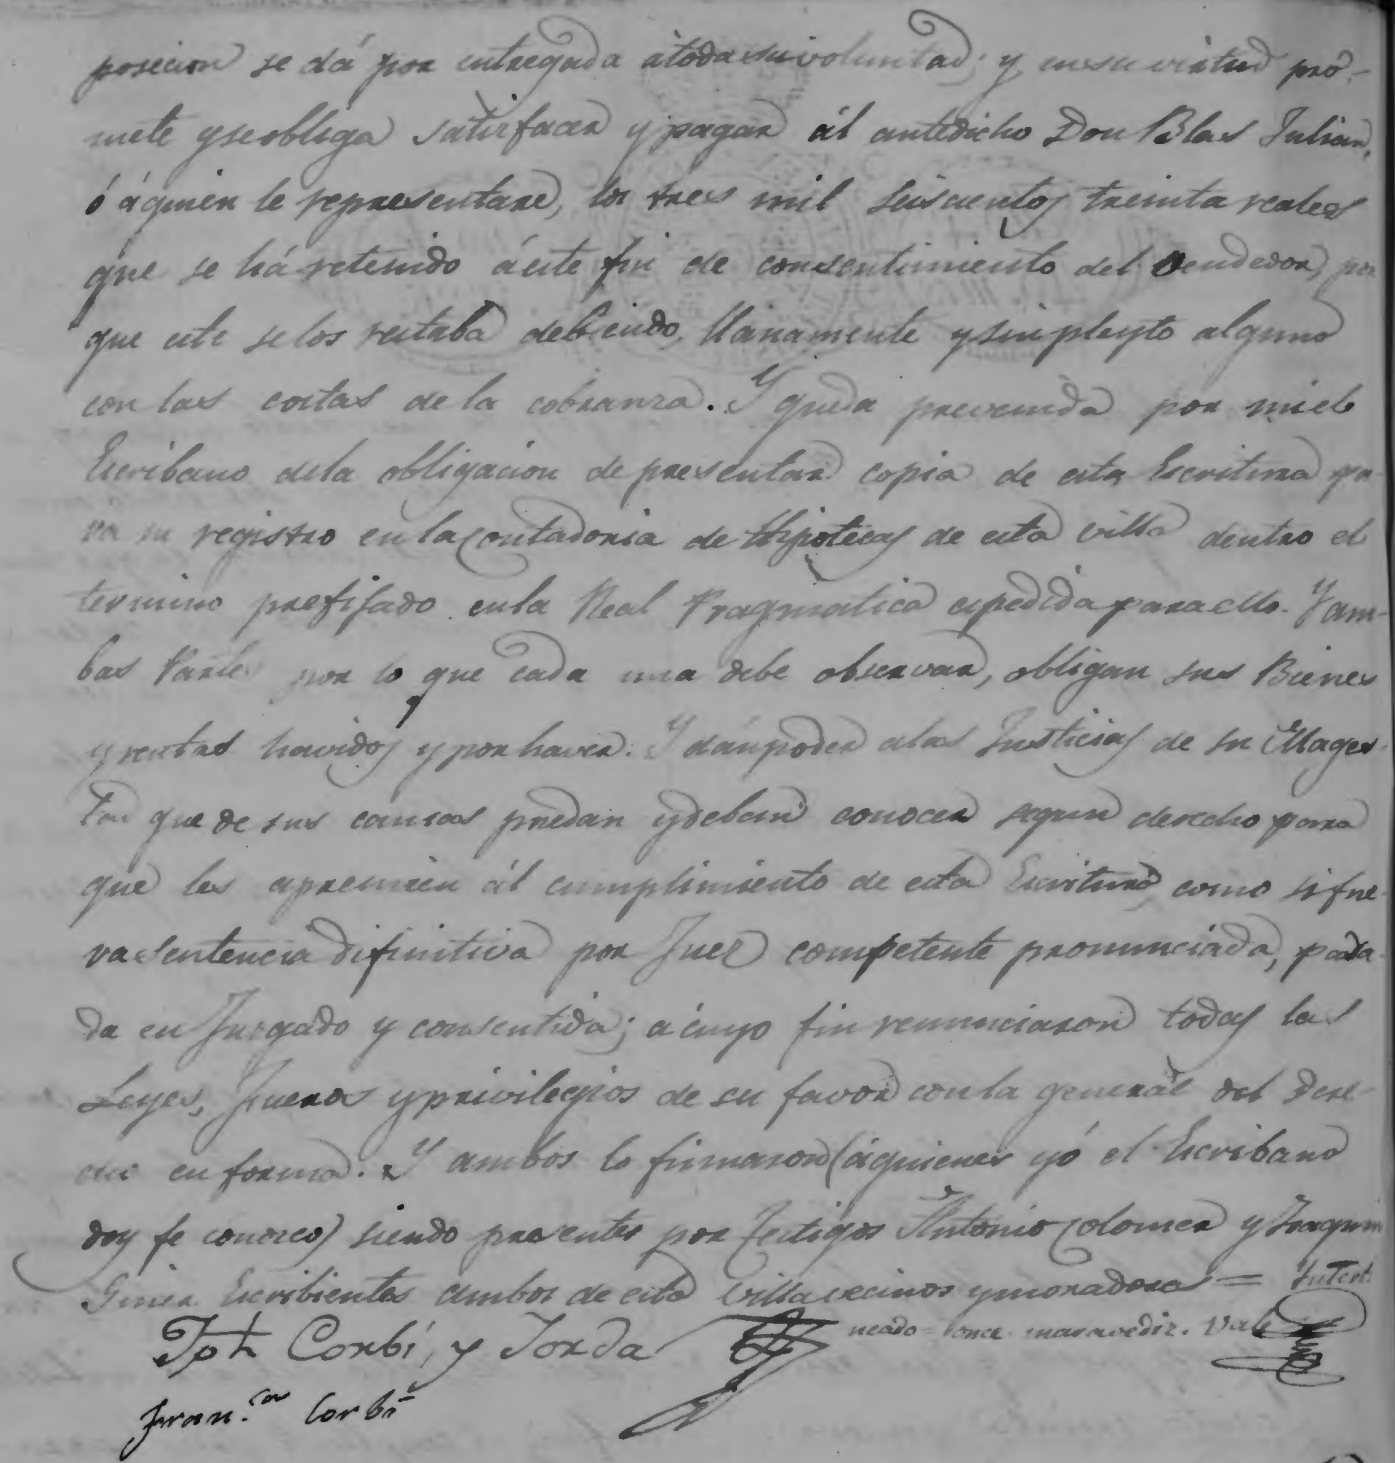 posecion se dá por entregada á toda su voluntad; y en su virtud pro-
mete y se obliga satisfacer y pagar ál antedicho Don Blas Julian,
ó á quien le representare, los tres mil seiscientos treinta reales
que se há retenido á este fin de consentimiento del Vendedor, por
que este se los restaba debiendo, llanamente y sin pleyto alguno
con las costas de la cobranza. Y queda prevenida por mi el
Escribano de la obligacion de presentar copia de esta Escritura pa-
ra su registro en la Contadoria de Hipotecas de esta villa dentro el
termino prefijado en la Real Pragmatica espedida para ello. Y am-
bas Partes por lo que cada una debe observar, obligan sus Bienes
y rentas havidos y por haver. Y dán poder a las Justicias de su Mages-
tad que de sus causas puedan y deban conocer segun derecho para
que les apremien ál cumplimiento de esta Escritura, como si fue-
ra sentencia difinitiva por Juez competente pronunciada, pasa-
da en Juzgado y consentida; á cuyo fin renunciaron todas las
Leyes, fueros y privilegios de su favor con la general del Dere-
cho en forma. Y ambos lo firmaron (á quienes yó el Escribano
doy fe conozco) siendo presentes por testigos Antonio Colomer y Joaquin
Giner Escribientes ambos de esta Villa vecinos y moradores = Interli
neado = once maravedis. Vale
Jph Corbí, y Jorda
Fran.ca Corbí